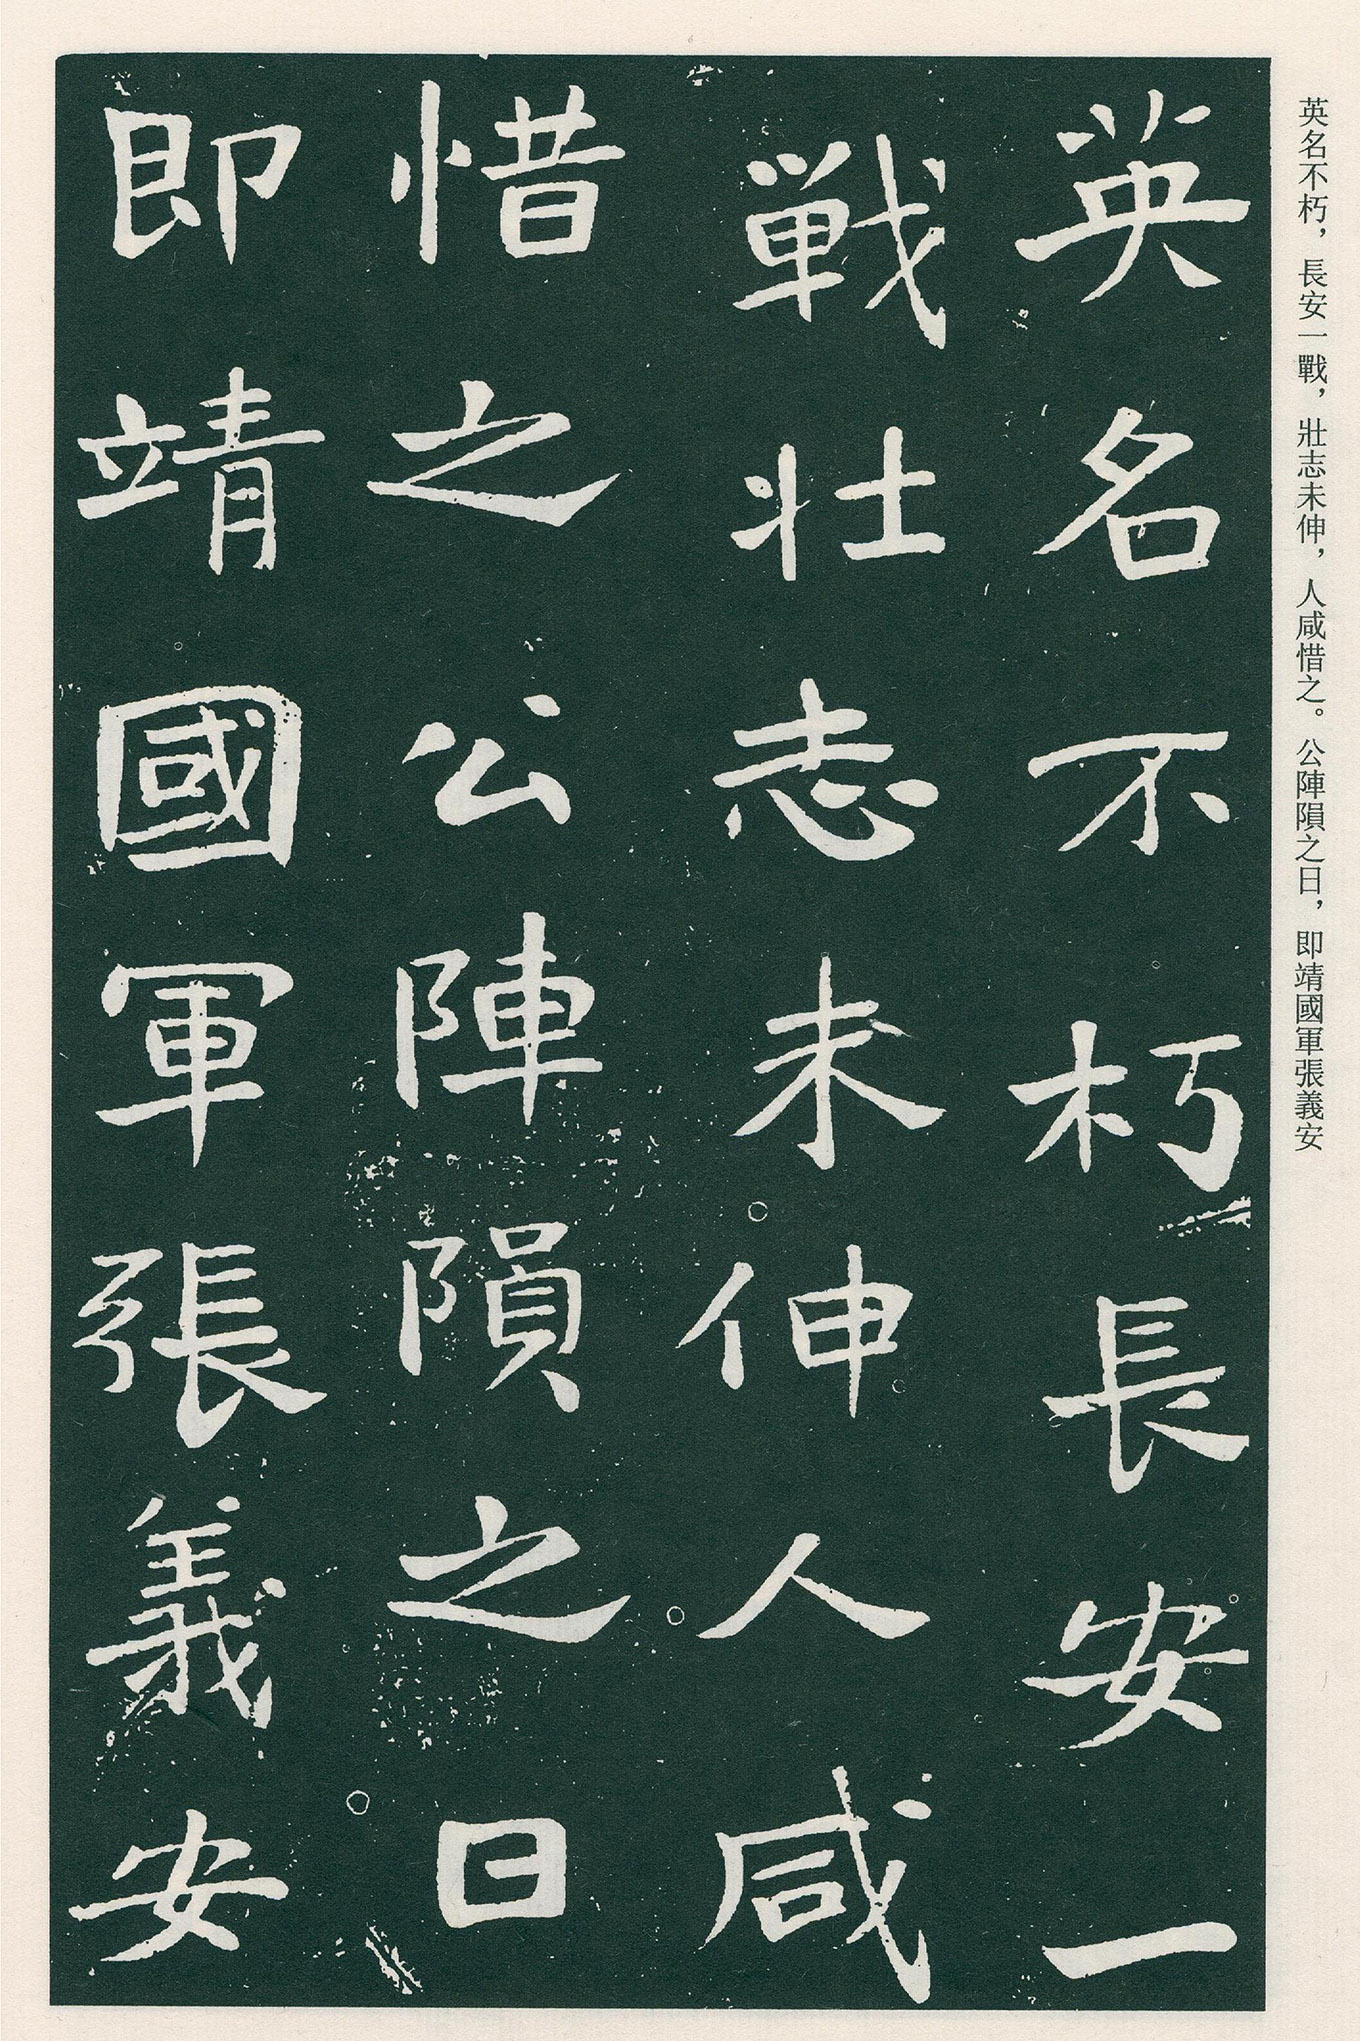 英名不朽，長安一戰，壯志未伸，人咸惜之。公陣隕之日，即靖國軍張義安
英名不朽長安一
戰壯志未伸人咸
惜之公陣隕之日
即靖國軍張義安